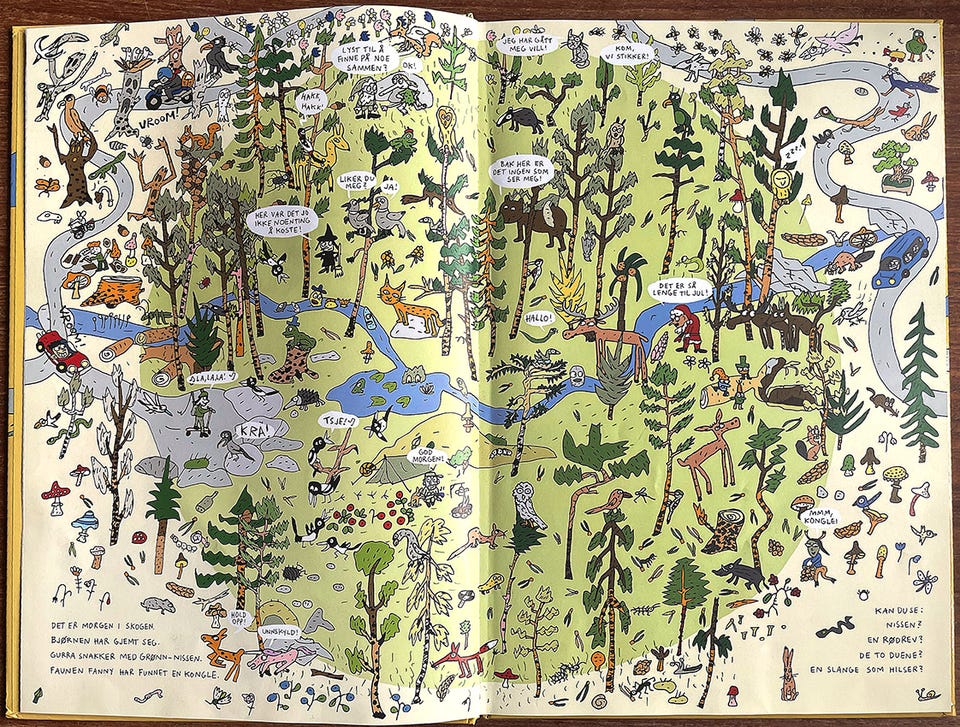 LYST TIL Å
FINNE PÅ NOE
SAMMEN?
OK!
VROOM!
HAKK,
HAKK!
LIKER DU
MEG?
JA!
HER VAR DET JO
IKKE NOENTING
Å KOSTE!
LA, LA, LA!
KRA!
TSJE!
GOD
MORGEN!
HOLD
OPP!
UNNSKYLD!
DET ER MORGEN I SKOGEN.
BJØRNEN HAR GJEMT SEG.
GURRA SNAKKER MED GRØNN-NISSEN.
FAUNEN FANNY HAR FUNNET EN KONGLE.
JEG HAR GÅTT
MEG VILL!
KOM,
VI STIKKER!
ZZZ!
BAK HER ER
DET INGEN SOM
SER MEG!
DET ER SÅ
LENGE TIL JUL!
HALLO!
MMM,
KONGLE!
KAN DU SE:
NISSEN?
EN RØDREV?
DE TO DUENE?
EN SLANGE SOM HILSER?